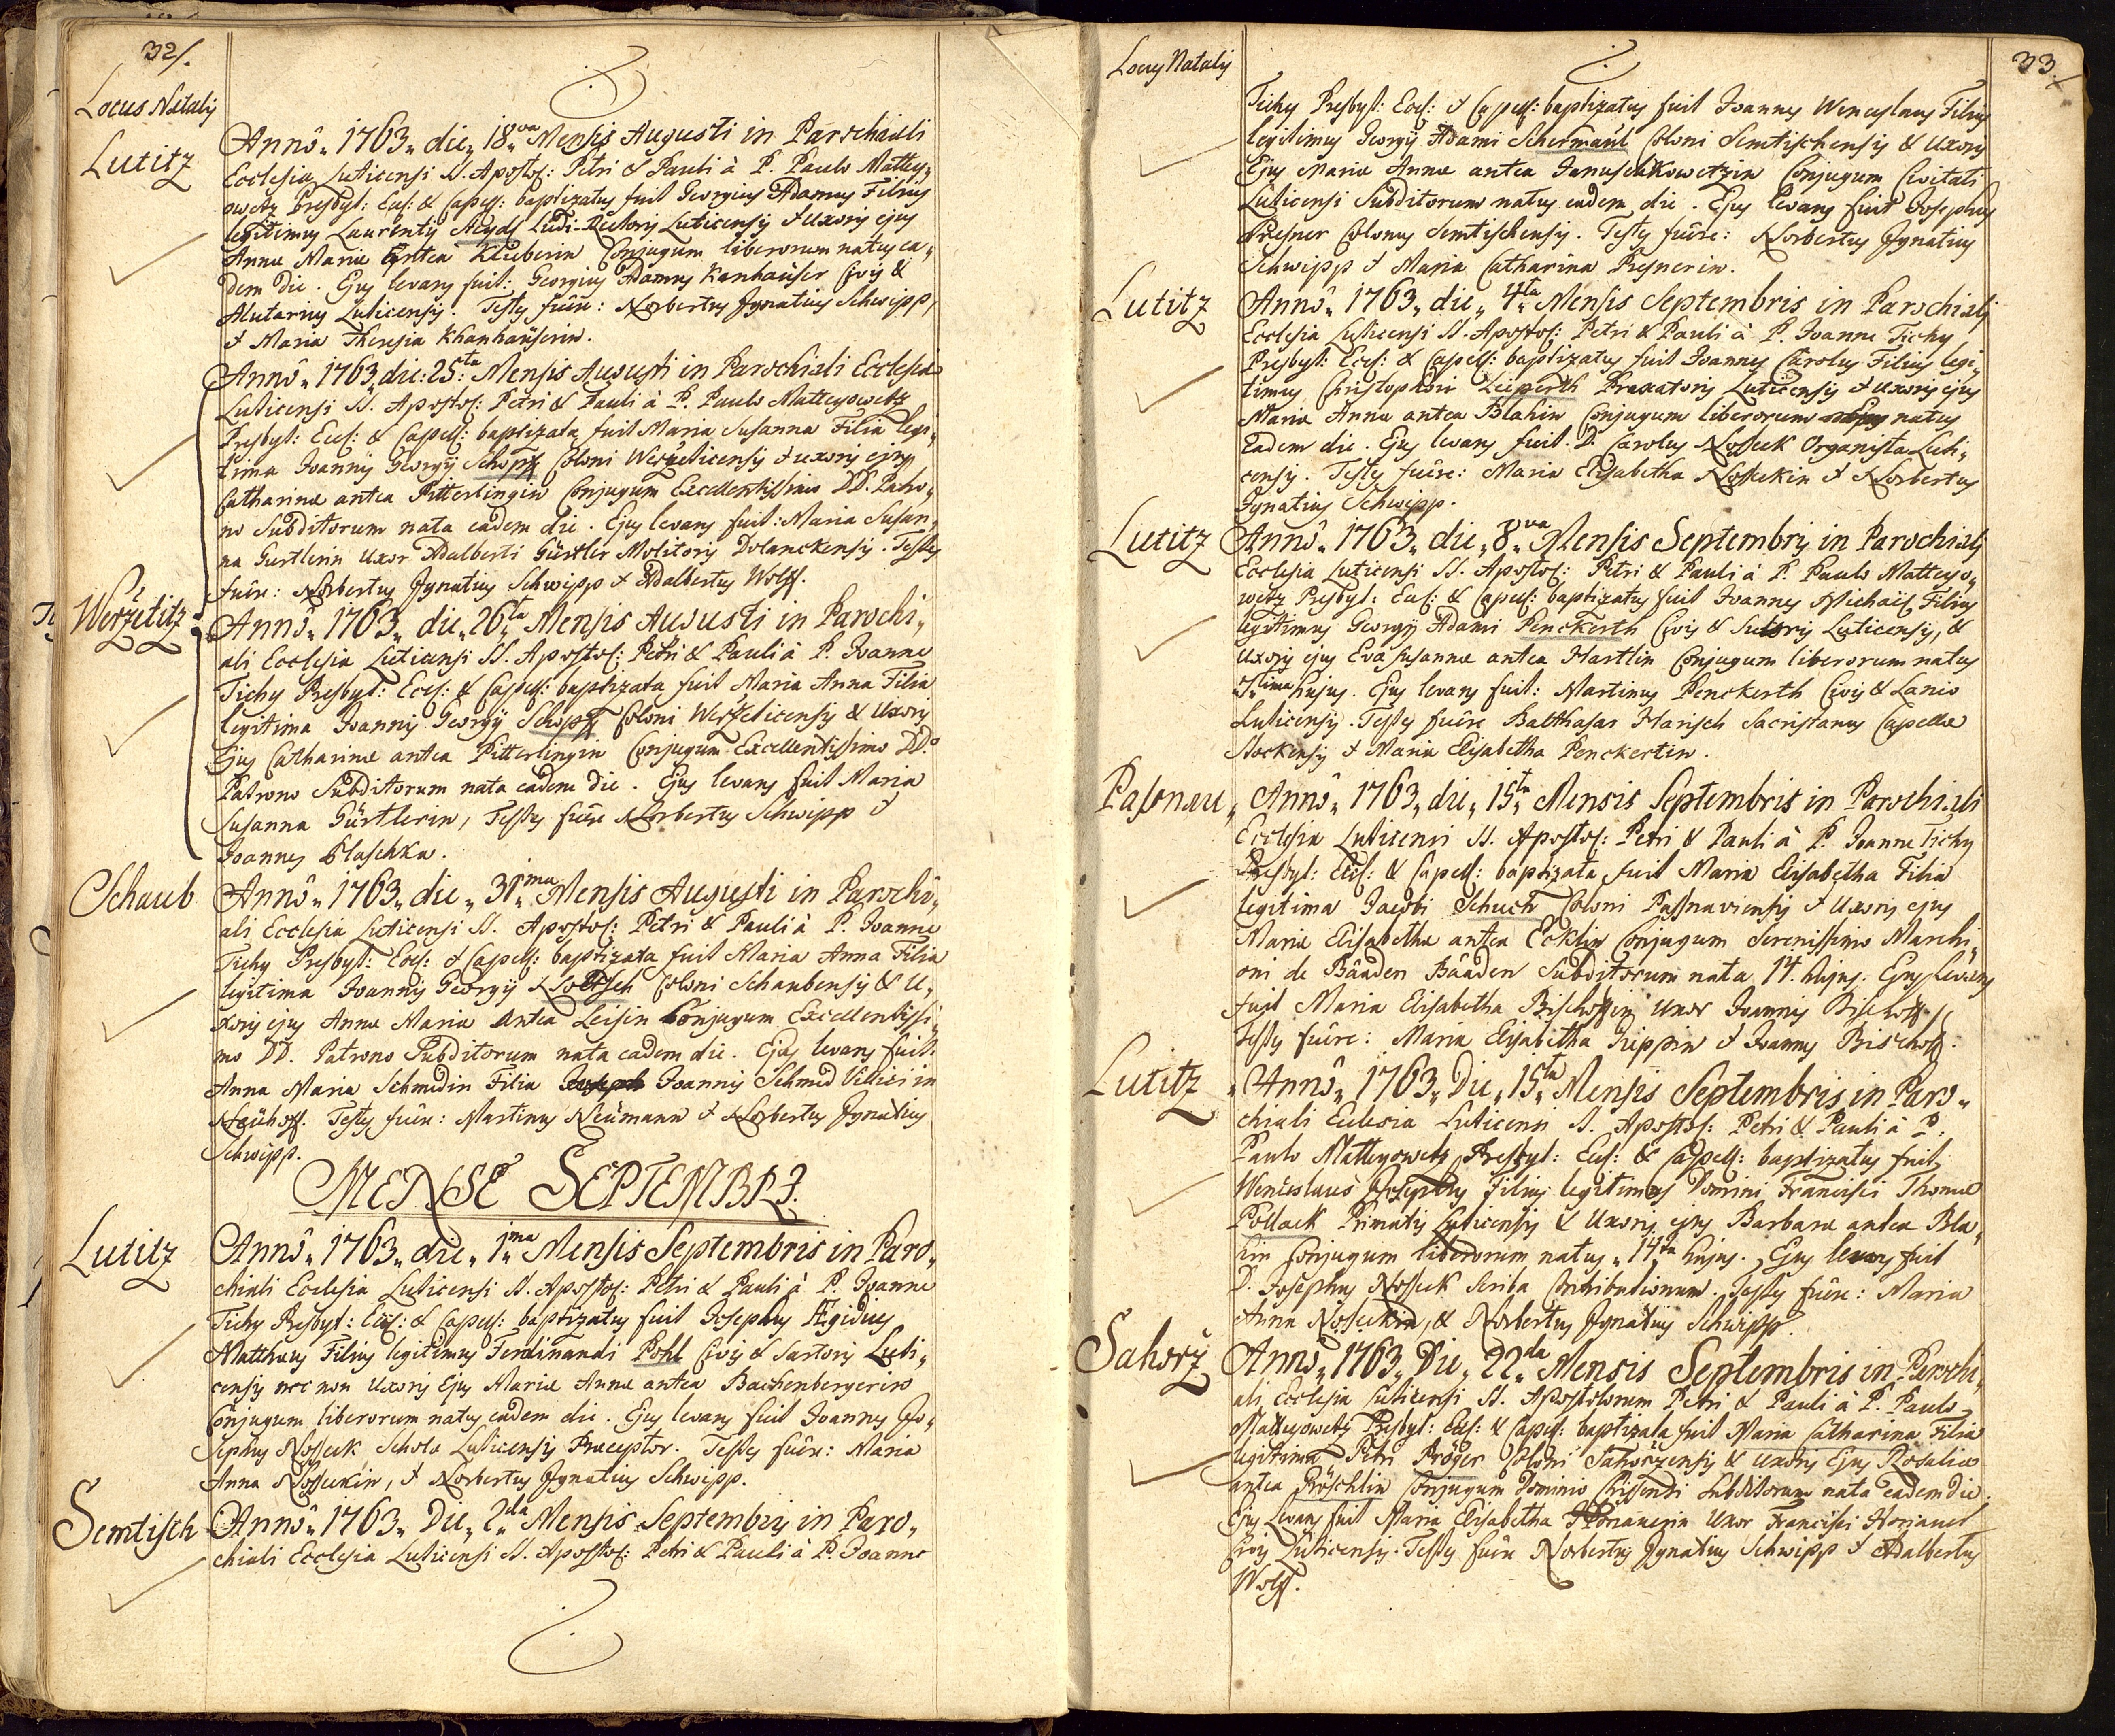 32/.
Locus Natalis
Lutitz
Anno „ 1763 „ die „ 18va Mensis Augusti in Parochiali
Ecclesia Luticensi SS. Apostol: Petri & Pauli à P. Paulo Mattey„
owetz Presbyt: Eccl: & Capell: baptizatus fuit Georgius Adamus Filius
legitimus Laurentii Ludi-Rectoris Luticensis & uxoris ejus
Annae Mariae antea Klieberin Conjugum liberorum natus ea„
dem die. Ejus levans fuit: Georgius Adamus Kanhaüser Civis &
Alutarius Luticensis. Testes fuêre: Norbertus Ignatius Schwipp,
& Maria Theresia Khanhaüserin.
Anno „ 1763 die: 25ta Mensis Augusti in Parochiali Ecclesia
Luticensi SS. Apostol: Petri & Pauli à P. Paulo Matteyowetz
Presbyt: Eccl: & Capell: baptizata fuit Maria Susanna Filia legi„
tima Joannis Georgii Schopff Coloni Weržeticensis & uxoris ejus
Catharinae antea Pitterlingin Conjugum Excellentissimo DD. Patro„
no Subditorum nata eadem die. Ejus levans fuit: Maria Susan„
na Gürtlerin Uxor Adalberti Gürtler Molitoris Dolanckensis. Testes
fuêre: Norbertus Ignatius Schwipp & Adalbertus Wolff.
Weržetitz
Anno „ 1763 „ die „ 26ta Mensis Augusti in Parochi„
ali Ecclesia Luticensi SS. Apostol: Petri & Pauli à P. Joanne
Tichy Presbyt: Eccl: & Capell: baptizata fuit Maria Anna Filia
legitima Joannis Georgii Schopff Coloni Weržeticensis & Uxoris
Ejus Catharinae antea Pitterlingin Conjugum Excellentissimo DD.
Patrono Subditorum nata eadem die. Ejus levans fuit Maria
Susanna Gürtlerin, Testes fuêre Norbertus Schwipp &
Joannes Blaschka.
Schaub
Anno „ 1763 „ die „ 31ma Mensis Augusti in Parochi„
ali Ecclesia Luticensi SS. Apostol: Petri & Pauli à P. Joanne
Tichy Presbyt: Eccl: & Capell: baptizata fuit Maria Anna Filia
legitima Joannis Georgii Coloni Schaubensis & U„
xoris ejus Annae Mariae antea Leisin Conjugum Excellentissi„
mo DD. Patrono Subditorum nata eadem die. Ejus levans fuit:
Anna Maria Schmidin Filia Joannis Schmid Villici in
Neühoff. Testes fuêre: Martinus Neümann & Norbertus Ignatius
Schwipp.
MENSE SEPTEMBRI.
Lutitz
Anno „ 1763 „ die „ 1ma Mensis Septembris in Paro„
chiali Ecclesia Luticensi SS. Apostol: Petri & Pauli à P. Joanne
Tichy Presbyt: Eccl: & Capell: baptizatus fuit Josephus Ægidius
Matthaeus Filius legitimus Ferdinandi Pohl Civis & Sartoris Luti„
censis nec non Uxoris Ejus Mariae Annae antea Bachenbergerin
Conjugum liberorum natus eadem die. Ejus levans fuit Joannes Jo„
sephus Nosseck Schola Luticensis Praeceptor. Testes fuêre: Maria
Anna Nosseckin, & Norbertus Ignatius Schwipp.
Semtisch
Anno „ 1763 „ Die „ 2da Mensis Septembris in Paro„
chiali Ecclesia Luticensi SS. Apostol: Petri & Pauli à P. Joanne
Locus Natalis
33/.
Tichy Presbyt: Eccl: & Capell: baptizatus fuit Joannes Wenceslaus Filius
legitimus Georgii Adami Schermaul Coloni Semtischensis & Uxoris
Ejus Mariae Annae antea Januschkowetzin Conjugum Civitati
Luticensi Subditorum natus eadem die. Ejus levans fuit Josephus
Presner Colonus Semtischensis. Testes fuêre: Norbertus Ignatius
Schwipp & Maria Catharina Presnerin.
Lutitz
Anno „ 1763 „ die „ 4ta Mensis Septembris in Parochiali
Ecclesia Luticensi SS. Apostol: Petri & Pauli à P. Joanne Tichy
Presbyt: Eccl: & Capell: baptizatus fuit Joannes Carolus Filius legi„
timus Christophori Leiperth Braxatoris Luticensis & uxoris ejus
Mariae Annae antea Blahin Conjugum liberorum natus
Eadem die. Ejus levans fuit. D. Carolus Nosseck Organista Luti„
censis. Testes fuêre: Maria Elisabetha Nosseckin & Norbertus
Ignatius Schwipp.
Lutitz
Anno „ 1763 „ die „ 8va Mensis Septembris in Parochiali
Ecclesia Luticensi SS. Apostol: Petri & Pauli à P. Paulo Matteyo„
wetz Presbyt: Eccl: & Capell: baptizatus fuit Joannes Michaël Filius
legitimus Georgii Adami Penckerth Civis & Sutoris Luticensis, &
Uxoris ejus Evae Susannae antea Hartlin Conjugum liberorum natus
7ima hujus. Ejus levans fuit: Martinus Penckerth Civis & Lanio
Luticensis. Testes fuêre Balthasar Harisch Sacristanus Capellae
Stockensis & Maria Elisabetha Penckertin.
Passnau „
Anno „ 1763 „ die „ 15ta Mensis Septembris in Parochiali
Ecclesia Luticensi SS. Apostol: Petri & Pauli à P. Joanne Tichy
Presbyt: Eccl: & Capell: baptizata fuit Maria Elisabetha Filia
legitima Jacobi Schuch Coloni Passnaviensis & Uxoris ejus
Mariae Elisabethae antea Ecklin Conjugum Serenissimo Marchi„
oni de Bâaden Bâaden Subditorum nata 14. hujus. Ejus levans
fuit Maria Elisabetha Bischoffin Uxor Joannis Bischoff.
Testes fuêre: Maria Elisabetha & Joannes Bischoff.
Lutitz
Anno „ 1763 „ Die „ 15ta Mensis Septembris in Paro„
chiali Ecclesia Luticensi SS. Apostol: Petri & Pauli à P.
Paulo Matteyowetz Presbyt: Eccl: & Capell: baptizatus fuit
Wenceslaus Josephus Filius legitimus Domini Francisci Thomae
Pollack Primatis Luticensis & Uxoris ejus Barbarae antea Bla„
hin Conjugum liberorum natus „ 14ta hujus. Ejus levans fuit
D. Josephus Nosseck Scriba Contributionum. Testes fuêre: Maria
Anna Nosseckin, & Norbertus Ignatius Schwipp.
Sahorž
Anno „ 1763 „ Die „ 22da Mensis Septembris in Parochi„
ali Ecclesia Luticensi SS. Apostolorum Petri & Pauli à P. Paulo
Matteyowetz Presbyt: Eccl: & Capell: baptizata fuit Maria Catharina Filia
legitima Petri Pröger Coloni Sahoržensis & uxoris Ejus Rosaliae
antea Pröschlin Conjugum Dominio Subditorum nata eadem die.
Ejus Levans fuit Maria Elisabetha Uxor Francisci
Civis Luticensis. Testes fuêre Norbertus Ignatius Schwipp & Adalbertus
Wolff.